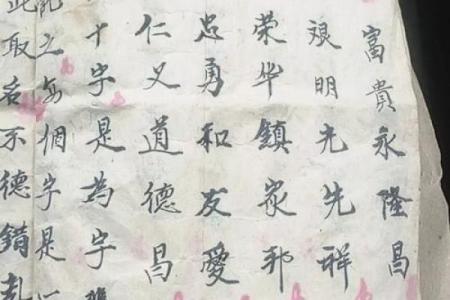 富貴永隆昌
明光先祥
荣华鎮家邦
忠勇和友愛
仁义道德昌
十字是為字
之每個字是
此取名不德錯乱